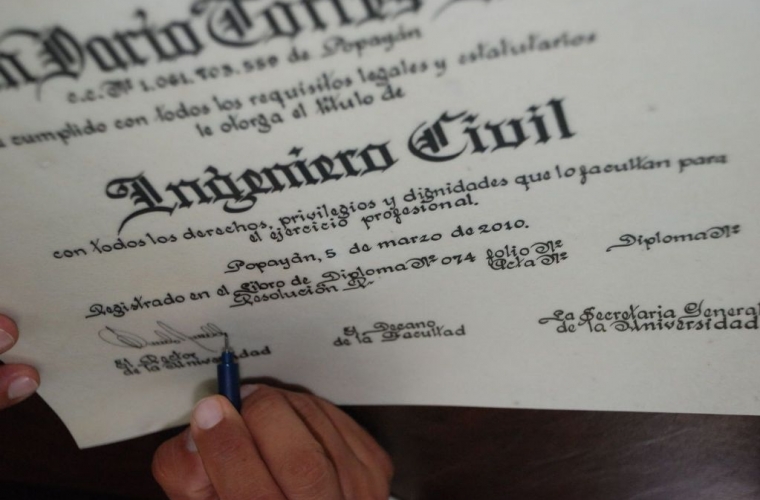 Dario Torres
c.c. Nº 1.061.703.559 de Popayán
cumplido con todos los requisitos legales y estatutarios
le otorga el título de
Ingeniero Civil
con todos los derechos, privilegios y dignidades que lo facultan para
el ejercicio profesional.
Popayán, 5 de marzo de 2010.
Registrado en el Libro de Diploma Nº 074 folio Nº Diploma Nº
Resolución R- Acta Nº
El Rector El Decano La Secretaria General
de la Universidad de la Facultad de la Universidad